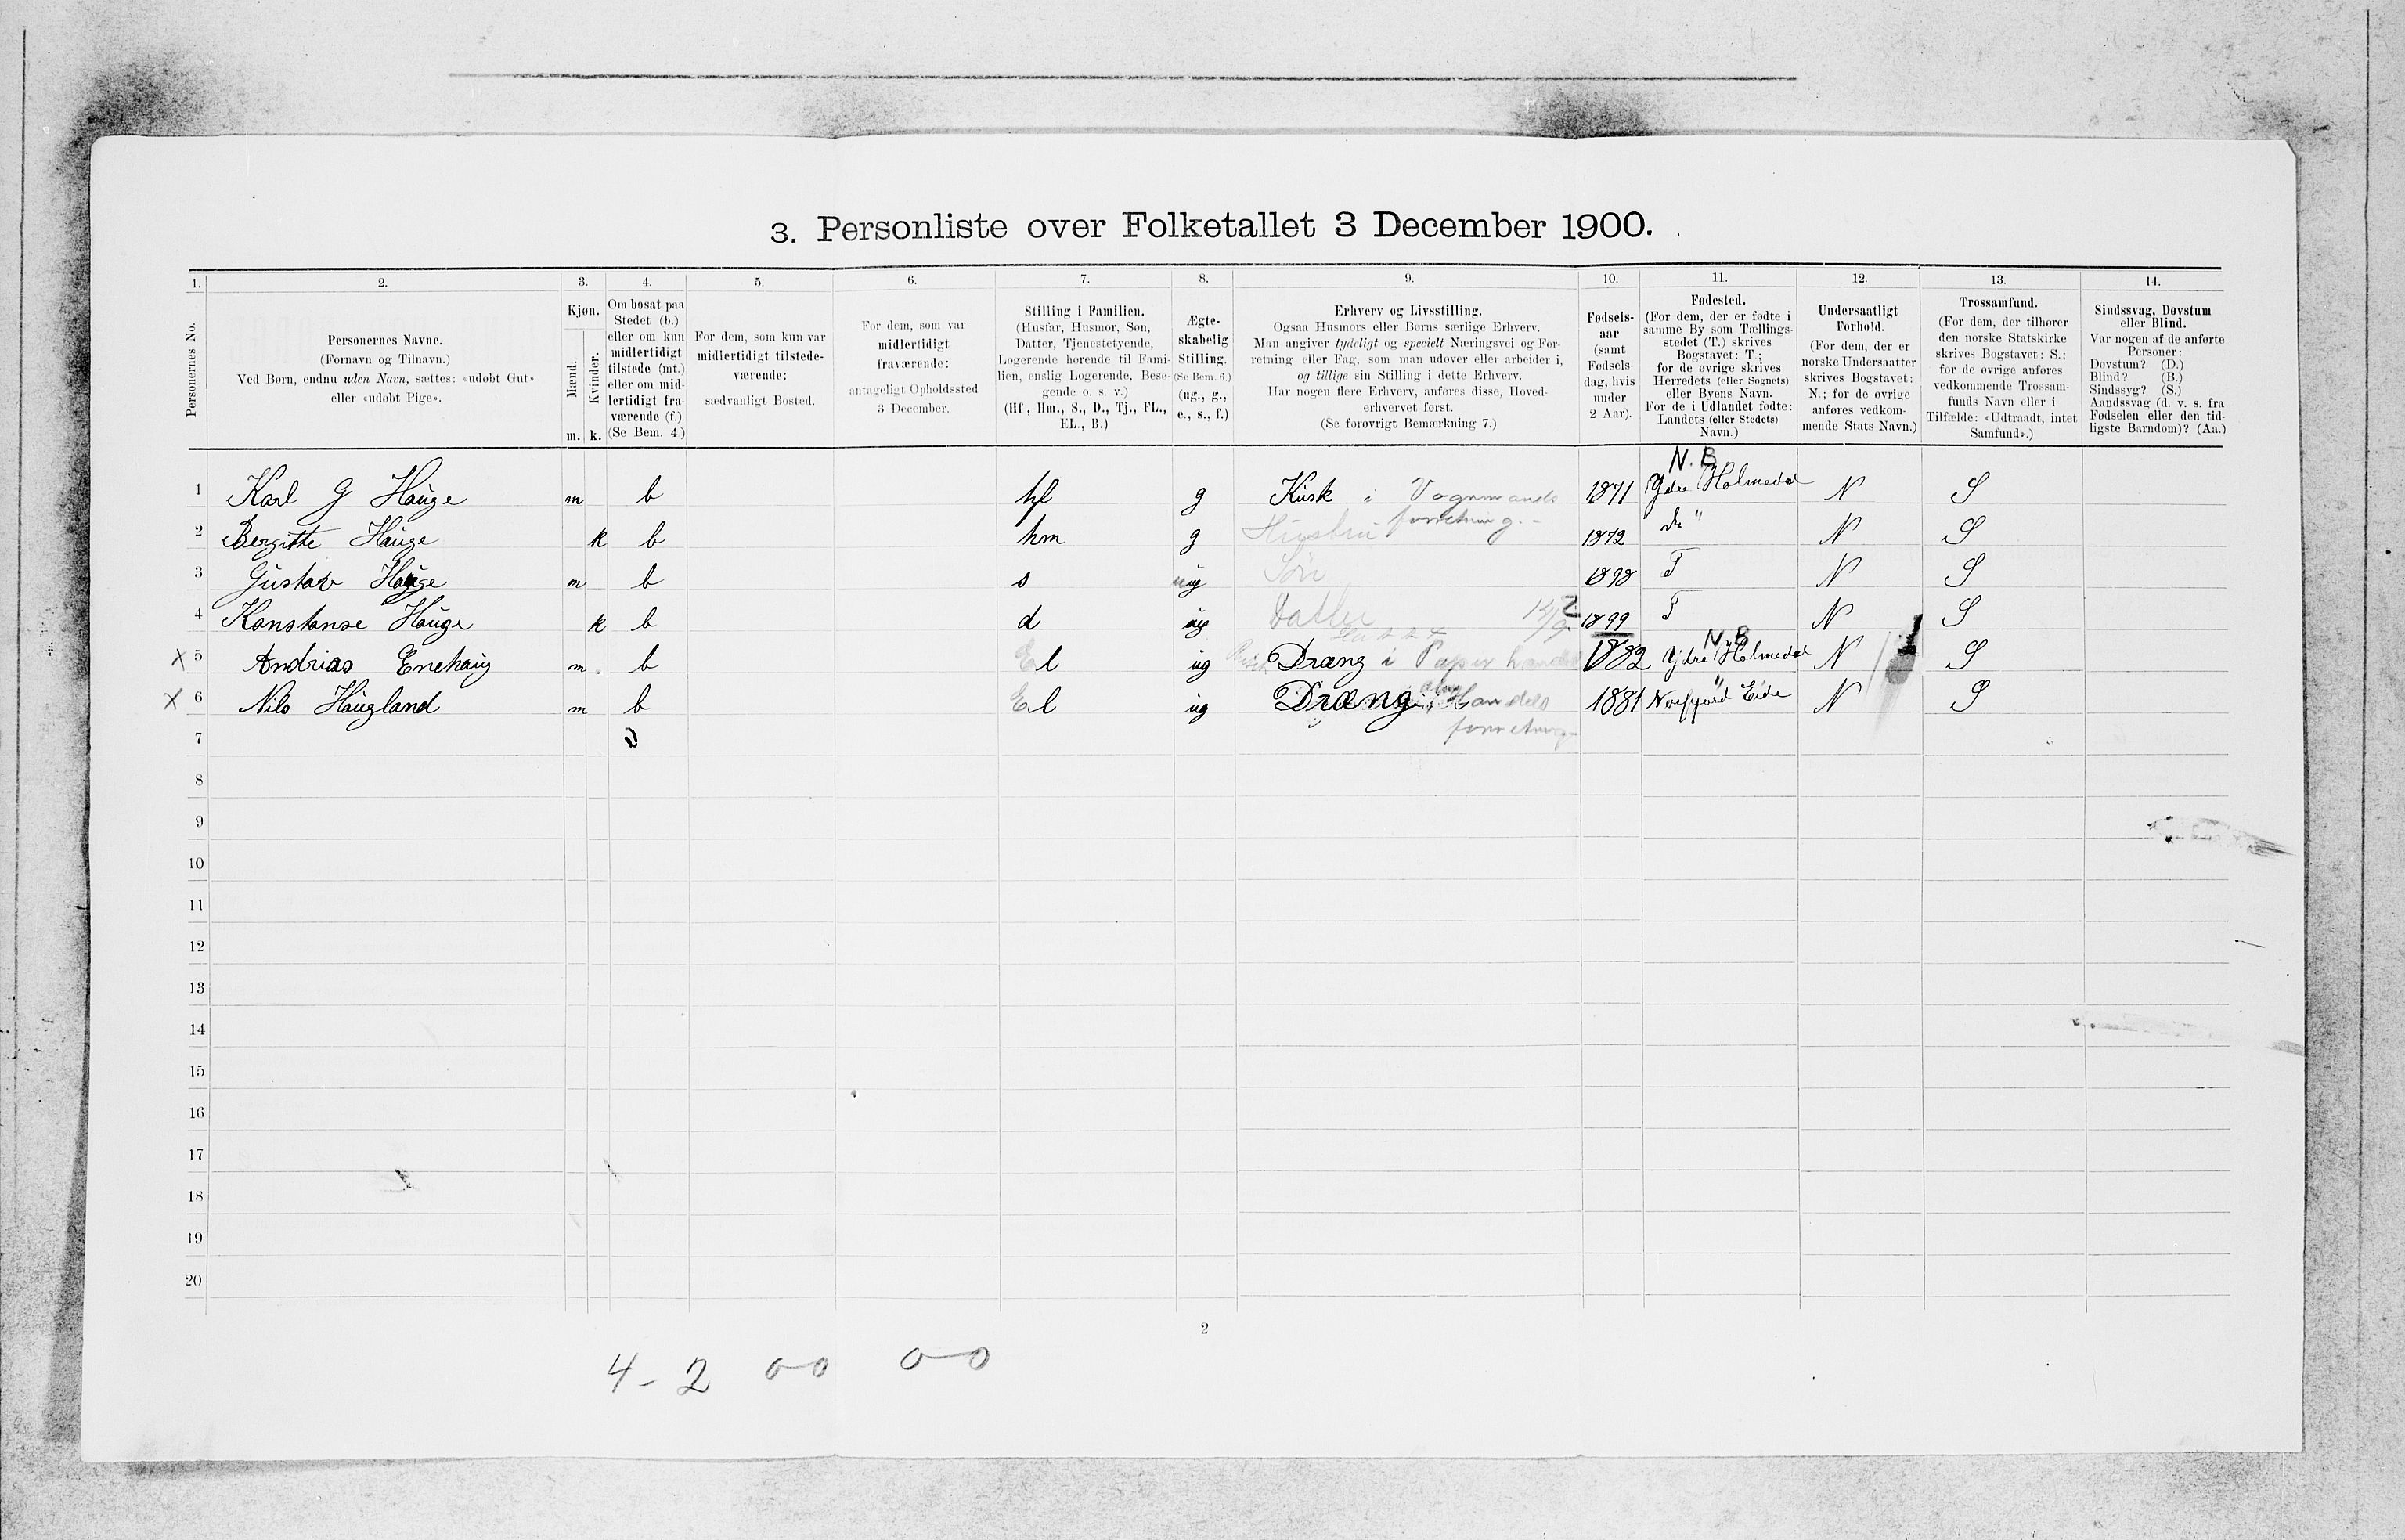 3. Personliste over Folketallet 3 December 1900.
1. 2. 3. 4. 5. 6. 7. 8. 9. 10. 11. 12. 13. 14.
Personernes No.
Personernes Navne.
(Fornavn og Tilnavn.)
Ved Børn, endnu uden Navn, sættes: «udøbt Gut»
eller «udøbt Pige».
Kjøn.
Mænd.
Kvinder.
m. k.
Om bosat paa
Stedet (b.)
eller om kun
midlertidigt
tilstede (mt.)
eller om mid-
lertidigt fra-
værende (f.).
(Se Bem. 4.)
For dem, som kun var
midlertidigt tilstede-
værende:
sædvanligt Bosted.
For dem, som var
midlertidigt
fraværende:
antageligt Opholdssted
3 December.
Stilling i Familien.
(Husfar, Husmor, Søn,
Datter, Tjenestetyende,
Logerende hørende til Fami-
lien, enslig Logerende, Besø-
gende o. s. v.)
(Hf, Hm., S., D., Tj., FL.,
EL., B.)
Ægte-
skabelig
Stilling.
(Se Bem. 6.)
(ug., g.,
e., s., f.)
Erhverv og Livsstilling.
Ogsaa Husmors eller Børns særlige Erhverv.
Man angiver tydeligt og specielt Næringsvei og For-
retning eller Fag, som man udøver eller arbeider i,
og tillige sin Stilling i dette Erhverv.
Har nogen flere Erhverv, anføres disse, Hoved-
erhvervet først.
(Se forøvrigt Bemærkning 7.)
Fødsels-
aar
(samt
Fødsels-
dag, hvis
under
2 Aar).
Fødested.
(For dem, der er fødte i
samme By som Tællings-
stedet (T.) skrives
Bogstavet: T.;
for de øvrige skrives
Herredets (eller Sognets)
eller Byens Navn.
For de i Udlandet fødte:
Landets (eller Stedets)
Navn.)
Undersaatligt
Forhold.
(For dem, der er
norske Undersaatter
skrives Bogstavet:
N.; for de øvrige
anføres vedkom-
mende Stats Navn.)
Trossamfund.
(For dem, der tilhører
den norske Statskirke
skrives Bogstavet: S.;
for de øvrige anføres
vedkommende Trossam-
funds Navn eller i
Tilfælde: «Udtraadt, intet
Samfund».)
Sindssvag, Døvstum
eller Blind.
Var nogen af de anførte
Personer:
Døvstum? (D.)
Blind? (B.)
Sindssyg? (S.)
Aandssvag (d. v. s. fra
Fødselen eller den tid-
ligste Barndom)? (Aa.)
N. B
1 Karl G Hauge m b hf g Kusk i Vognmands 1871 Ydre Holmedal N S
forretning.
2 Bergitte Hauge k b hm g Hustru 1872 do " N S
3 Gustav Hauge m b s ug Søn 1898 T N S
4 Konstanse Hauge k b d ug Datter 1899 T N S
N. B
X 5 Andrias Enehaug m b El ug Dræng i Papir handel 1882 Ydre Holmedal N S
X 6 Nils Haugland m b El ug Dræng i Handels 1881 Eide N S
forretning
7
8
9
10
11
12
13
14
15
16
17
18
19
20
2
4 - 2 0-0 0-0